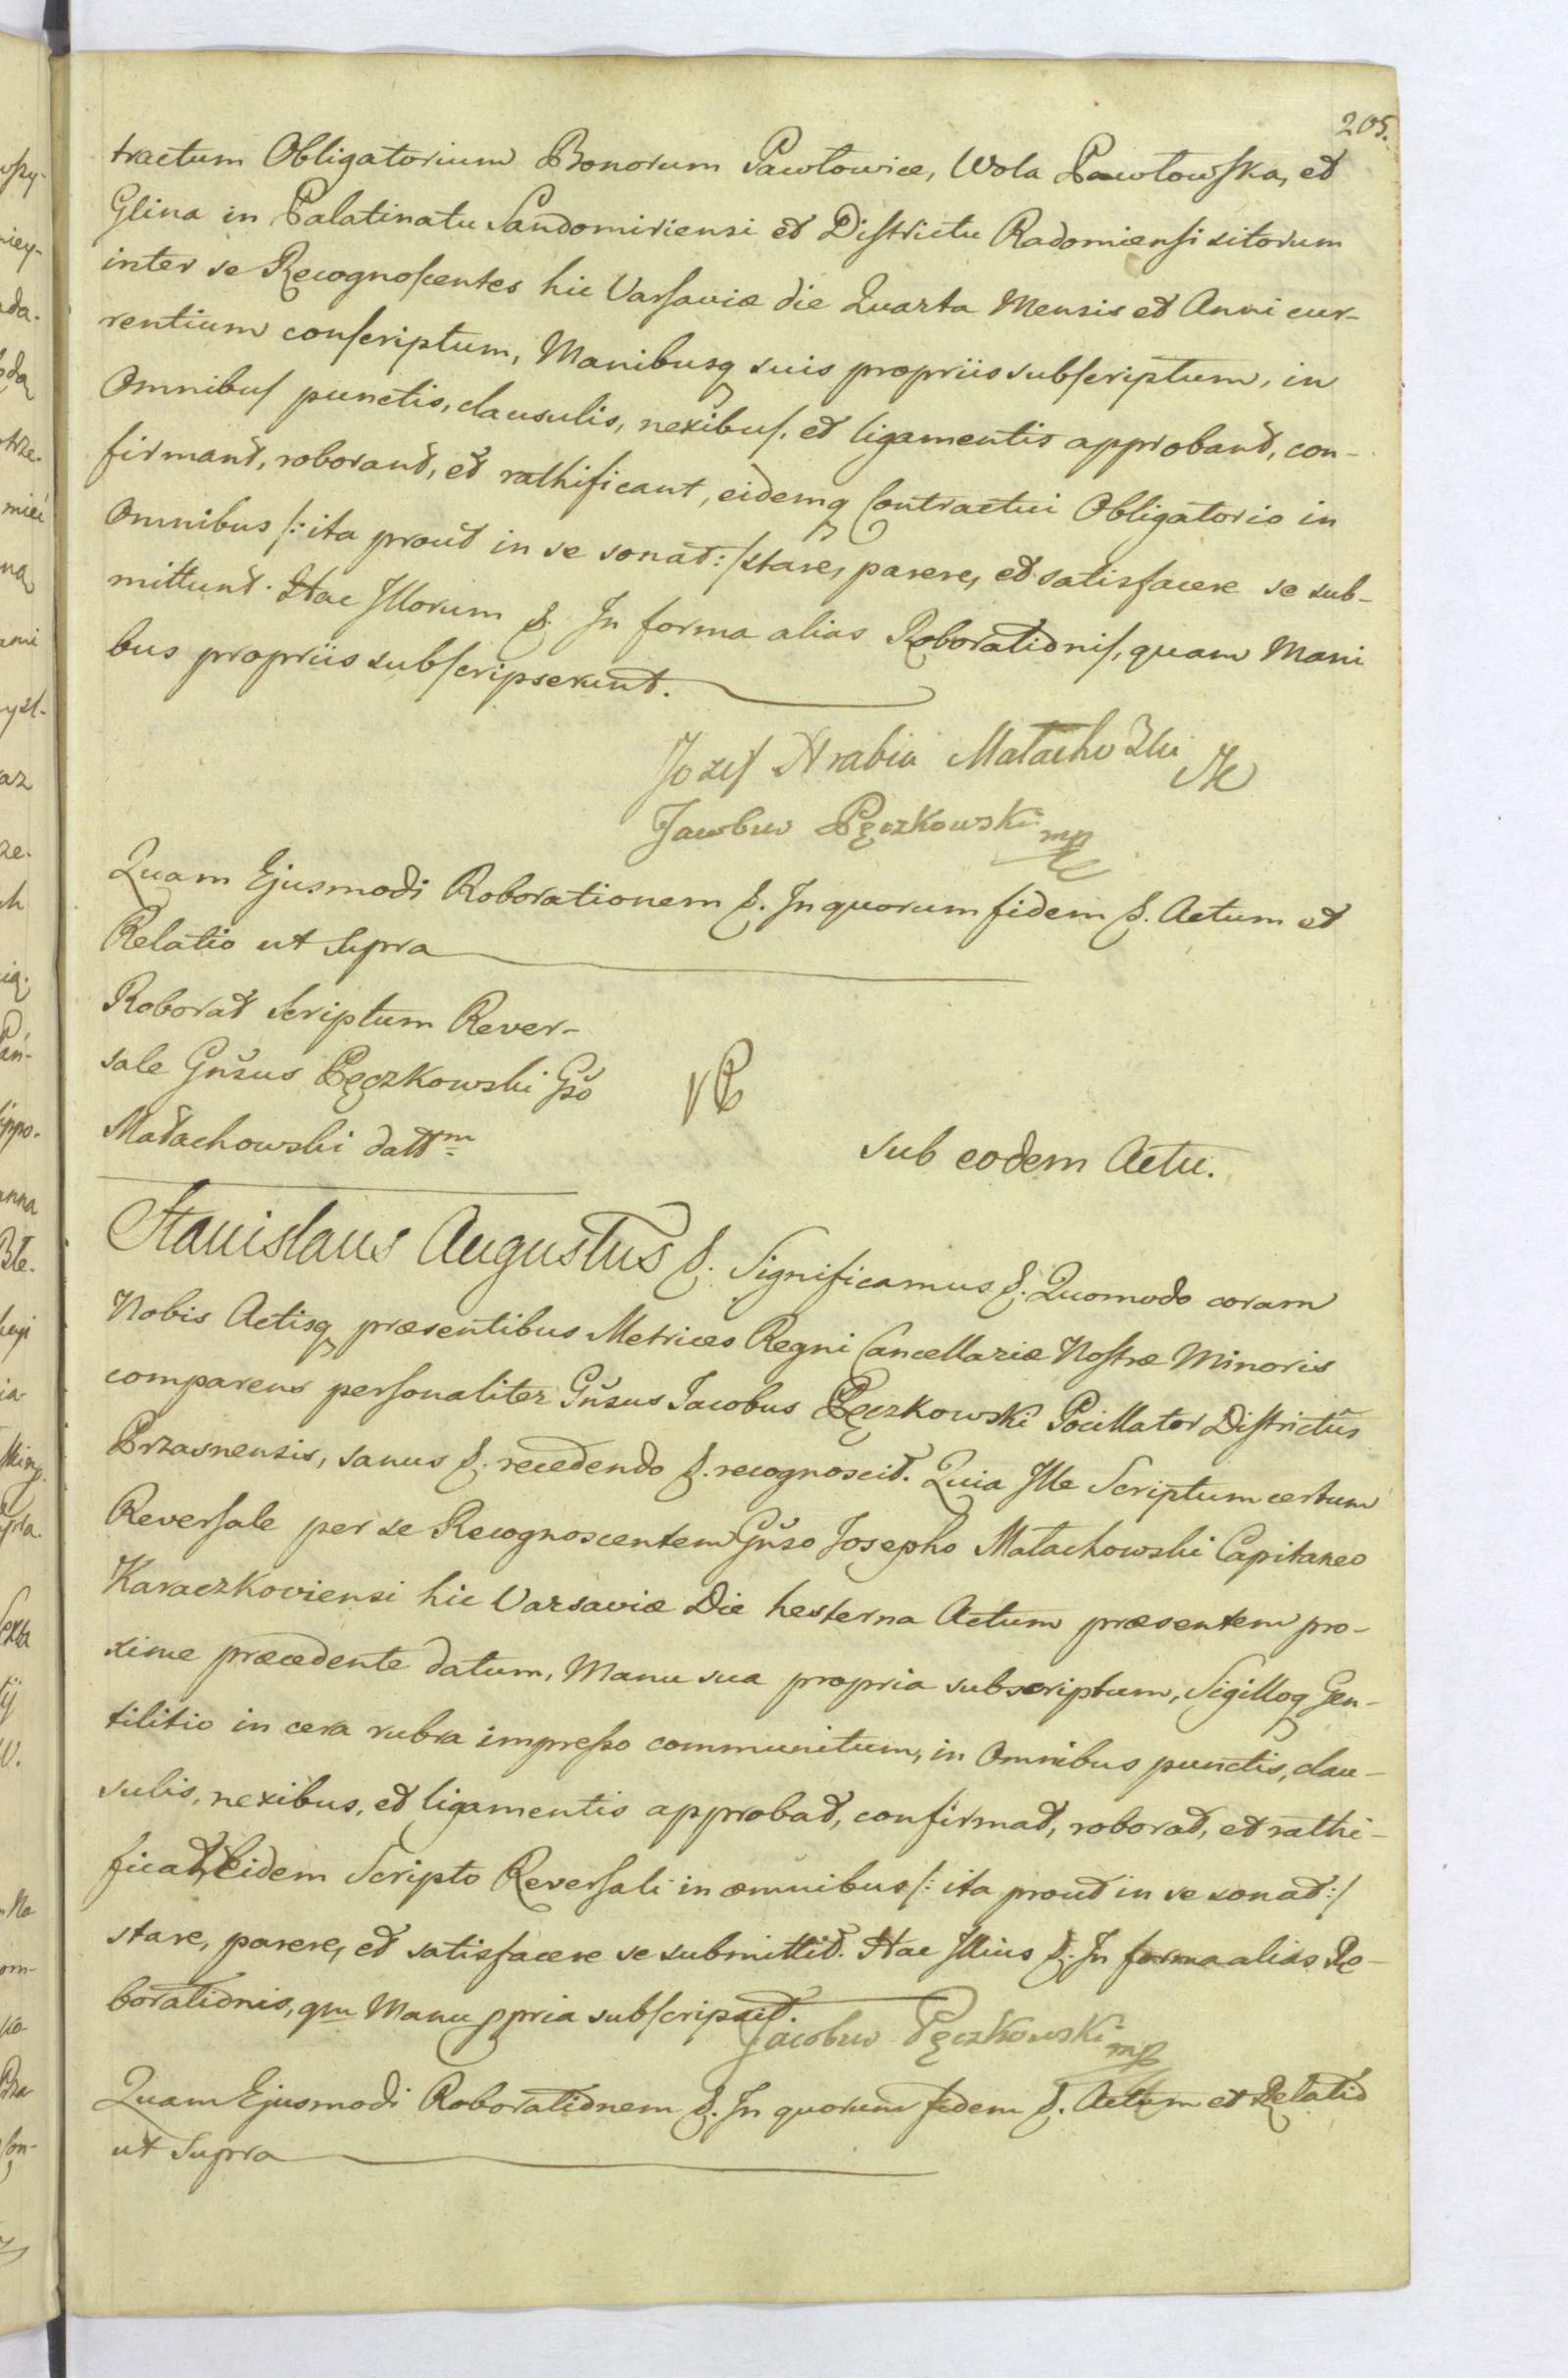 205.
tractum Obligatorium Bonorum Pawłowice, Wola Pawłowska, et
Glina in Palatinatu Sandomiriensi et Districtu Radomiensi sitorum
inter se Recognoscentes hic Varsaviæ die Quarta Mensis et Anni cur-
rentium conscriptum, Manibusq suis propriis subscriptum, in
Omnibus punctis, clausulis, nexibus, et ligamentis approbant, con-
firmant, roborant, et rathificant, eidemq Contractui Obligatorio in
Omnibus /: ita prout in se sonat :/ stare, parere, et satisfacere se sub-
mittunt. Hac Illorum &. In forma alias Roborationis, quam Mani
bus propriis subscripserunt.
Jozef Hrabia Małachowski
Jacobus Pęczkowski mp
Quam Ejusmodi Roborationem &. In quorum fidem &. Actum et
Relatio ut Supra
Roborat Scriptum Rever-
sale Gnsus Pęczkowski Gso
Małachowski dattm
sub eodem Actu.
Stanislaus Augustus &. Significamus &. Quomodo coram
Nobis Actisq præsentibus Metrices Regni Cancellariæ Nostræ Minoris
comparens personaliter Gnsus Jacobus Pęczkowski Pocillator Districtus
Przasnensis, sanus &. recedendo &. recognoscit. Quia Ille Scriptum certum
Reversale per se Recognoscentem Gnso Josepho Małachowski Capitaneo
Karaczkoviensi hic Varsaviæ Die hesterna Actum præsentem pro-
xime præcedente datum, Manu sua propria subscriptum, Sigilloq Gen-
tilitio in cera rubra impresso communitum, in Omnibus punctis, clau-
sulis, nexibus, et ligamentis approbat, confirmat, roborat, et rathi-
ficat, Eidem Scripto Reversali in omnibus /: ita prout in se sonat :/
stare, parere, et satisfacere se submittit. Hac Illius &. In forma alias Ro-
borationis, qm Manu ppria subscripsit.
Jacobus Pęczkowski mp
Quam Ejusmodi Roborationem &. In quorum fidem &. Actum et Relatio
ut Supra